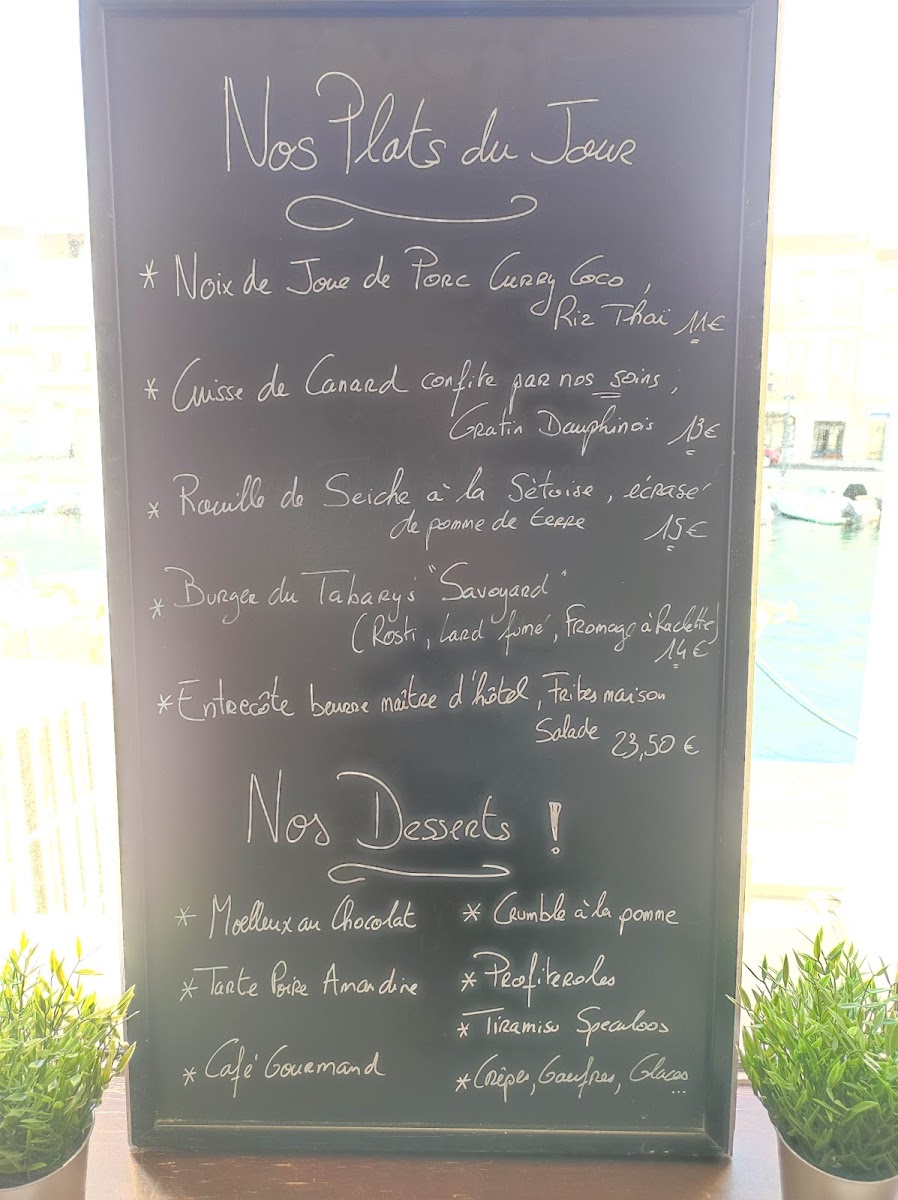 Nos Plats du Jour
* Noix de Joue de Porc Curry Coco,
Riz Thaï 11€
* Cuisse de Canard confite par nos soins,
Gratin Dauphinois 13€
* Rouille de Seiche à la Sètoise, écrasé
de pomme de terre 15€
* Burger du Tabary's "Savoyard"
(Rosti, Lard fumé, Fromage à Raclette)
14€
* Entrecôte beurre maître d'hôtel, Frites maison
Salade 23,50 €
Nos Desserts !
* Moelleux au Chocolat * Crumble à la pomme
* Tarte Poire Amandine * Profiteroles
* Tiramisu Speculoos
* Café Gourmand * Crêpes, Gaufres, Glaces...